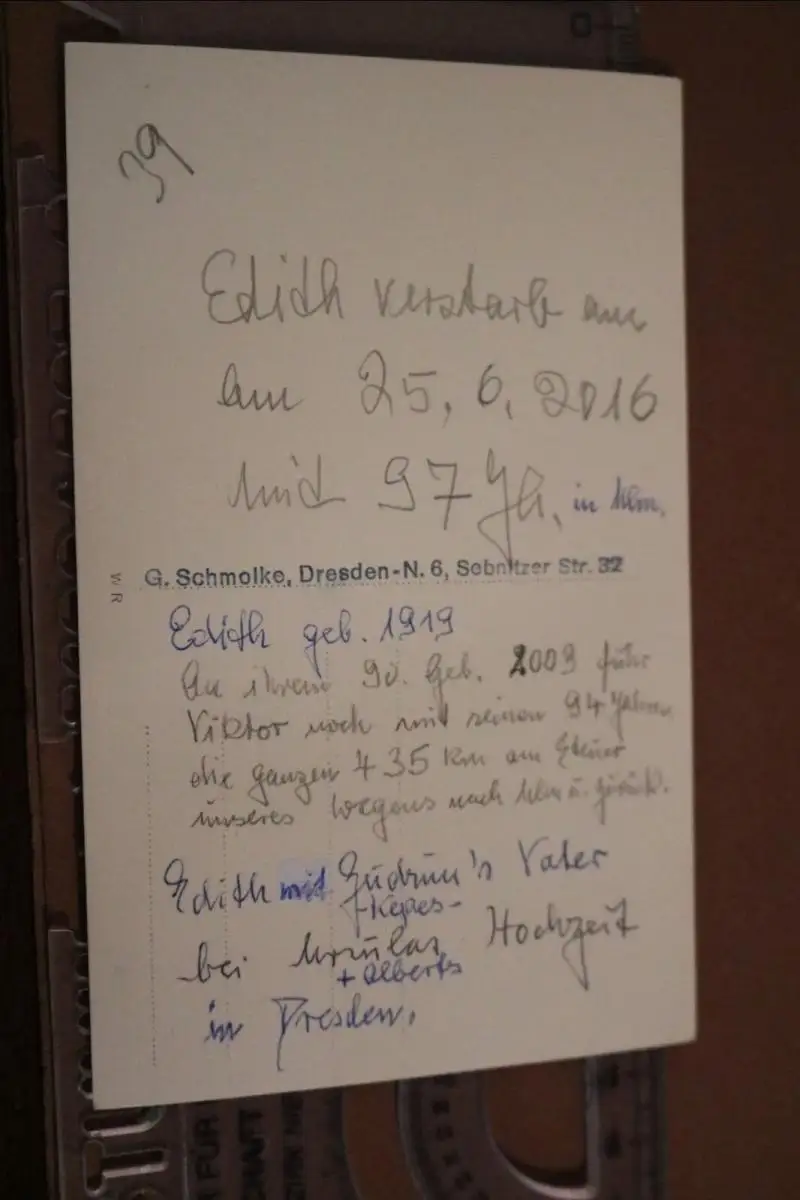 39
Edith verstarb am
am 25, 6, 2016
mit 97 Jh. in Ulm.
WR
G. Schmolke, Dresden-N. 6, Sebnitzer Str. 32
Edith geb. 1919
An ihrem 90. Geb. 2009 fuhr
Viktor noch mit seinen 94 Jahren
die ganzen 435 km am Steuer
unseres Wagens nach Ulm u. zurück.
Edith mit Gudrun's Vater
bei Ursulas Hochzeit
+ Alberts
in Dresden.
FÜR